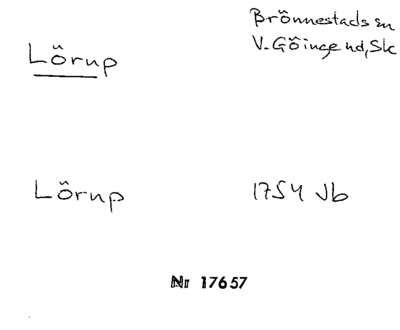 Lörup
Brönnestads sn
V. Göinge hd, Sk
Lörup
1754 Jb
Nr 17657